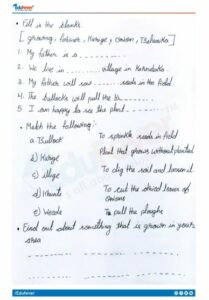 Eduhever
• Fill in the blanks
[growing, farmer, Kurige, onion, Belvanika]
1. My father is a
2. We live in village in Karnataka
3. My father will sow seeds in the field
4. The bullocks will pull the
5. I am happy to see the plant
• Match the following:-
a) Bullock To sprinkle seeds in field
b) Kurige Plant that grows without planted
c) Illige To dig the soil and loosen it
d) Khunti To cut the dried leaves of onions
e) Weeds To pull the ploughs
• Find out about something that is grown in your area